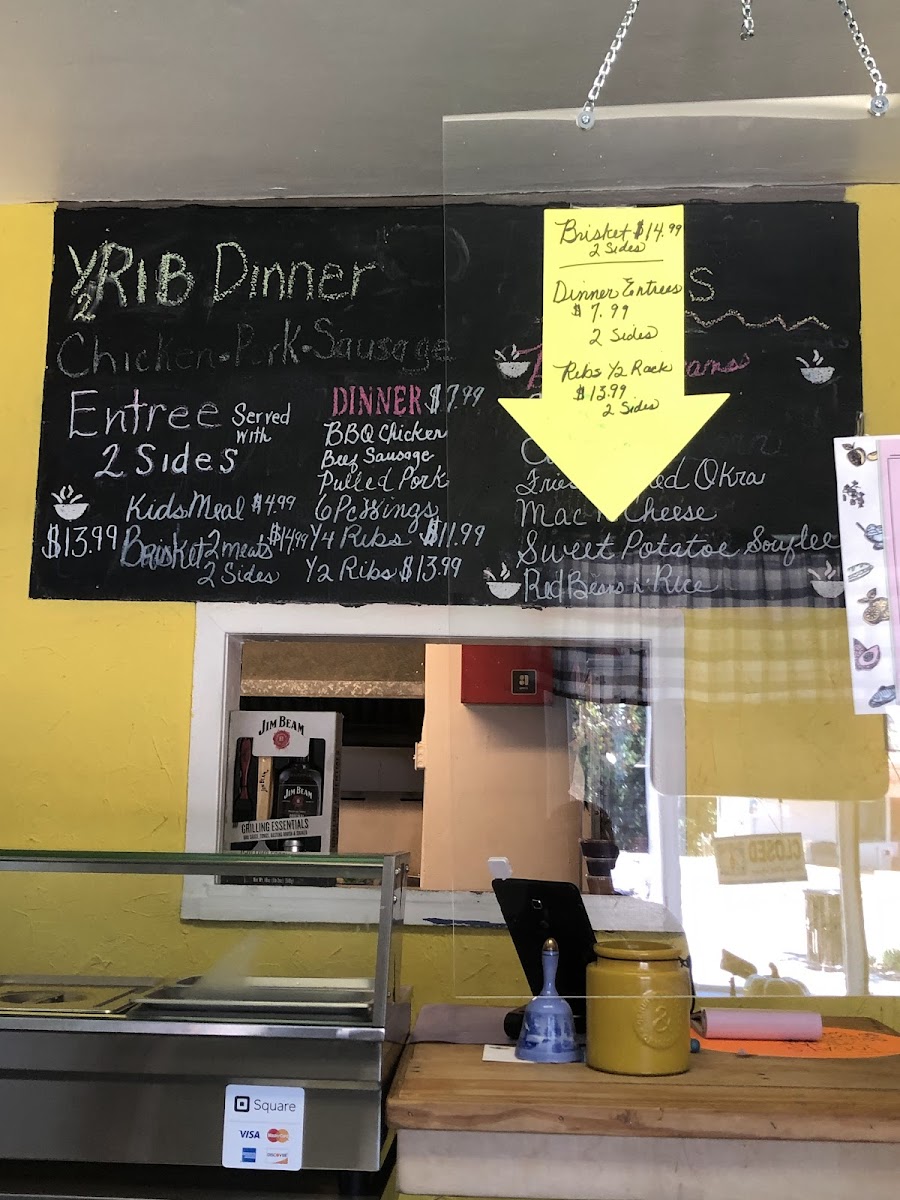 Y2 RIB Dinner
Chicken-Pork-Sausage
Entree Served
With
2 Sides
Kids Meal $4.99
$13.99 Brisket 2 meats $14.99
2 Sides
DINNER $7.99
BBQ Chicken
Beef Sausage
Pulled Pork
6 Pc Wings
Y4 Ribs $11.99
Y2 Ribs $13.99
Brisket $14.99
2 Sides
Dinner Entrees
$7.99
2 Sides
Ribs Y2 Rack
$13.99
2 Sides
S
Okra
Mac n Cheese
Sweet Potatoe Souflee
Red Beans n' Rice
JIM BEAM
JIM BEAM
GRILLING ESSENTIALS
CLOSED
Square
VISA MasterCard
DISCOVER